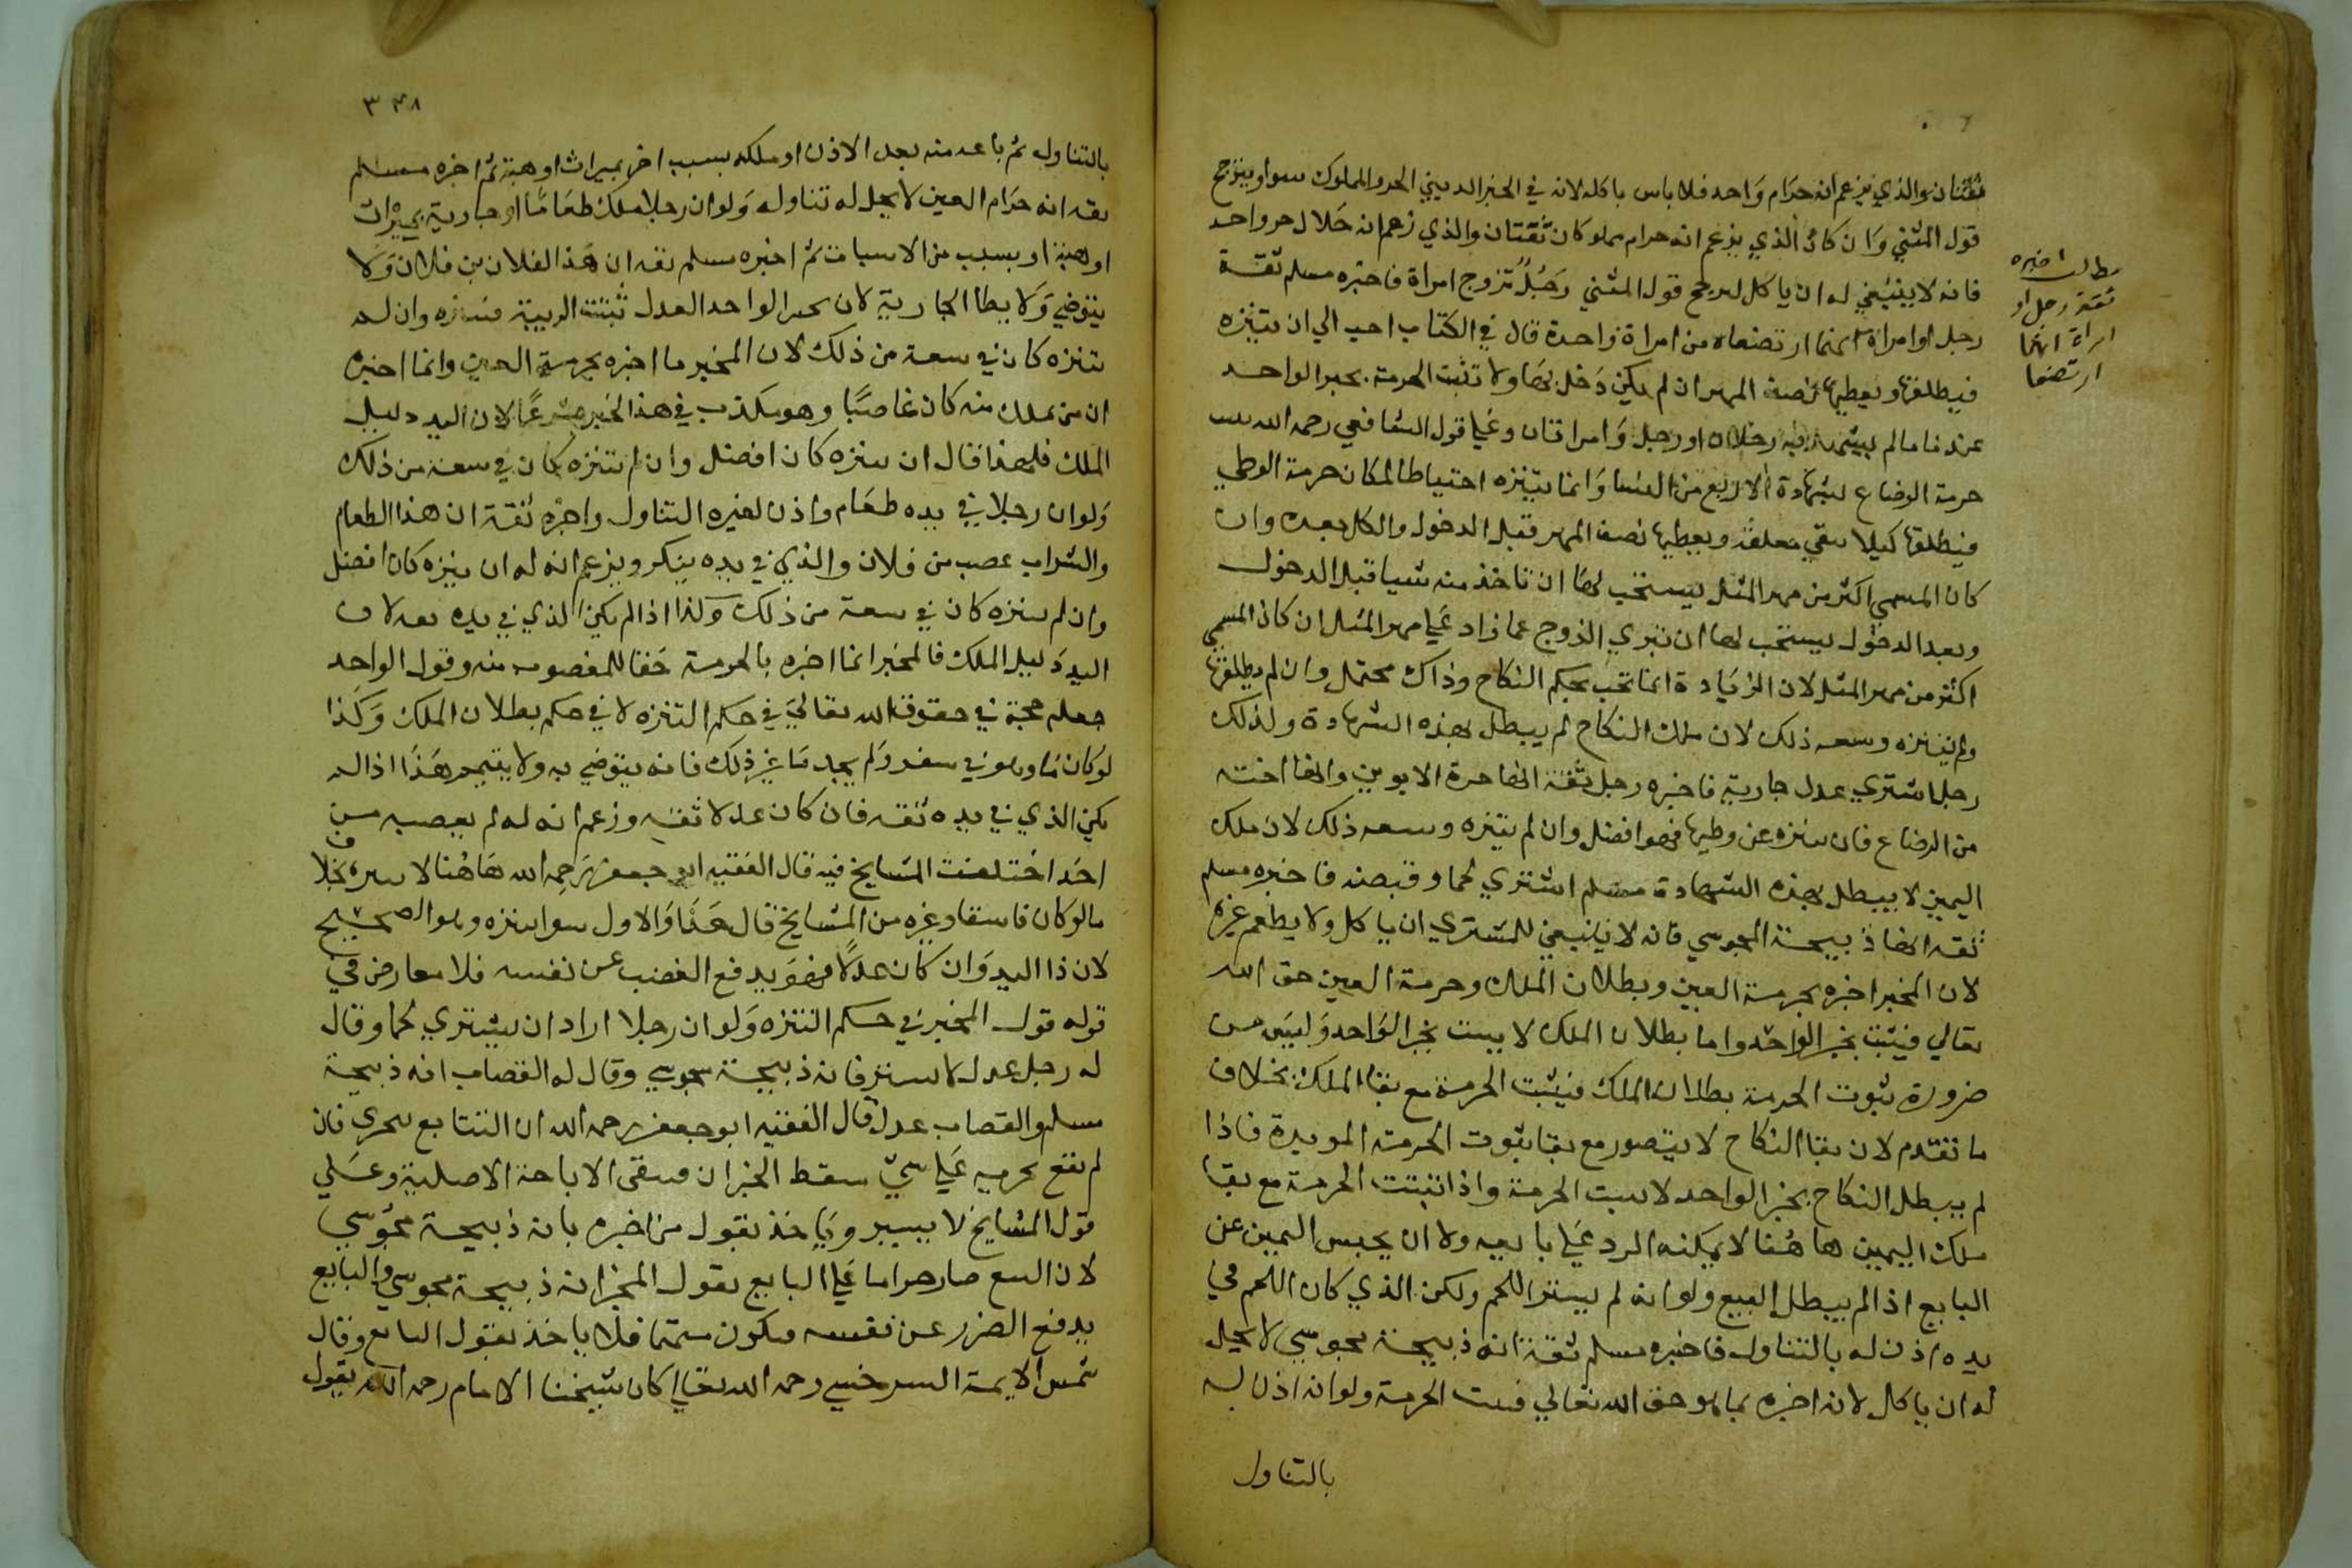 ثقتان والذي يزعم انه حرام واحد فلا باس باكله لانه في الخبر الديني الحر والمملوك سوا ويترجح
قول المثني وان كان الذي يزعم انه حرام مملوكان ثقتان والذي زعم انه حلال حر واحد
فانه لا ينبغي له ان ياكل لترجح قول المثني رجل تزوج امراة فاخبره مسلم ثقة
رجل او امراة انهما ارتضعا من امراة واحدة قال في الكتاب احب الي ان يتنزه
فيطلقها ويعطيها نصف المهر ان لم يكن دخل بها ولا تثبت الحرمة بخبر الواحد
عندنا ما لم يشهد به رجلان او رجل وامراتان وعلي قول الشافعي رحمه الله تثبت
حرمة الرضاع بشهادة الاربع من النسا وانما يتنزه احتياطا لمكان حرمة الوطي
فيطلقها كيلا تبقي معلقة ويعطيها نصف المهر قبل الدخول والكل بعده وان
كان المسمي اكثر من مهر المثل يستحب لها ان تاخذ منه شيا قبل الدخول
وبعد الدخول يستحب لها ان تبري الزوج عما زاد علي مهر المثل ان كان المسمي
اكثر من مهر المثل لان الزيادة انما تجب بحكم النكاح وذاك محتمل وان لم يطلقها
ولم يتنزه وسعه ذلك لان ملك النكاح لم يبطل بهذه الشهادة ولذلك
رجل اشتري عدل جارية فاخبره رجل ثقة انها حرة الابوين وانها اخته
من الرضاع فان تنزه عن وطيها فهو افضل وان لم يتنزه وسعه ذلك لان ملك
اليمين لا يبطل بهذه الشهادة مسلم اشتري لحما وقبضه فاخبره مسلم
ثقه انها ذبيحة المجوسي فانه لا ينبغي للمشتري ان ياكل ولا يطعم غيره
لان المخبر اخبره بحرمة العين وبطلان الملك وحرمة العين حق الله
تعالي فيثبت بخبر الواحد واما بطلان الملك لا يثبت بخبر الواحد وليس من
ضرورة ثبوت الحرمة بطلان الملك فيثبت الحرمة مع بقا الملك بخلاف
ما تقدم لان بقا النكاح لا يتصور مع بقا ثبوت الحرمة الموبدة فاذا
لم يبطل النكاح بخبر الواحد لا تثبت الحرمة واذا ثبتت الحرمة مع بقا
ملك اليمين هاهنا لا يمكنه الرد علي بايعه ولا ان يحبس الثمن عن
البايع اذا لم يبطل البيع ولو انه لم يشتر اللحم ولكن الذي كان اللحم في
يده اذن له بالتناول فاخبره مسلم ثقة انه ذبيحة مجوسي لا يحل
له ان ياكل لانه اخبره بما هو حق الله تعالي فتثبت الحرمة ولو انه اذن له
بالتناول
مطلب اخبره
ثقة رجل او
امراة انهما
ارتضعا
٣٤٨
بالتناول ثم باعه منه بعد الاذن او ملكه بسبب اخر بميراث او هبة ثم اخبره مسلم
ثقه انه حرام العين لا يحل له تناوله ولو ان رجلا ملك طعاما او جارية بميراث
او هبة او بسبب من الاسباب ثم اخبره مسلم ثقه ان هذا لفلان بن فلان ولا
يتوضي ولا يطا الجارية لان بخبر الواحد العدل تثبت الريبة فيتنزه وان لم
يتنزه كان في سعة من ذلك لان المخبر ما اخبره بحرمة العين وانما اخبره
ان من تملك منه كان غاصبا وهو مكذب في هذا الخبر شرعا لان اليد دليل
الملك فلهذا قال ان تنزه كان افضل وان لم يتنزه كان في سعة من ذلك
ولو ان رجلا في يده طعام واذن لغيره التناول واخبره ثقة ان هذا الطعام
والشراب غصب من فلان والذي في يده ينكر ويزعم انه له ان تنزه كان افضل
وان لم يتنزه كان في سعة من ذلك وكذا اذا لم يكن الذي في يده ثقه لان
اليد دليل الملك فالمخبر انما اخبره بالحرمة حقا للمغصوب منه وقول الواحد
جعل حجة في حقوق الله تعالي في حكم التنزه لا في حكم بطلان الملك وكذا
لو كان ما وهو في سفر ولم يجد ما غير ذلك فانه يتوضي به ولا يتيمم هذا اذا لم
يكن الذي في يده ثقه فان كان عدلا ثقه وزعم انه له لم يغصبه من
احد اختلفت المشايخ فيه قال الفقيه ابو جعفر رحمه الله هاهنا لا يتنزه بخلاف
ما لو كان فاسقا وغيره من المشايخ قال هذا والاول سوا يتنزه وهو الصحيح
لان ذا اليد وان كان عدلا فهو يدفع الغصب عن نفسه فلا معارض في
قوله قول المخبر في حكم التنزه ولو ان رجلا اراد ان يشتري لحما وقال
له رجل عدل لا تشتر فانه ذبيحة مجوسي وقال له القصاب انه ذبيحة
مسلم والقصاب عدل قال الفقيه ابو جعفر رحمه الله ان التتابع يتحري فان
لم يقع تحريه علي شي سقط الخبران فيبقي الاباحة الاصلية وعلي
قول المشايخ لا يشتر وياخذ بقول من اخبره بانه ذبيحة مجوسي
لان البيع صار حراما علي البايع بقول المخبر انه ذبيحة مجوسي والبايع
يدفع الضرر عن نفسه فيكون متهما فلا ياخذ بقول البايع وقال
شمس الايمة السرخسي رحمه الله تعالي كان شيخنا الامام رحمه الله يقول